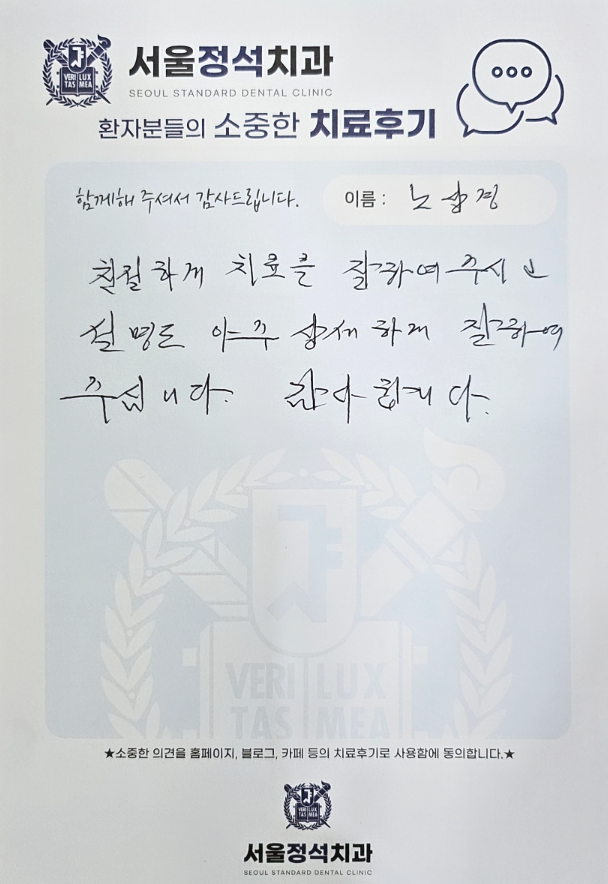 서울정석치과
SEOUL STANDARD DENTAL CLINIC
환자분들의 소중한 치료후기
함께해 주셔서 감사드립니다.
이름 : 노삼경
친절하게 치료를 잘하여 주시고
설명도 아주 상세하게 잘하여
주십니다. 감사합니다.
VERI LUX
TAS MEA
★소중한 의견을 홈페이지, 블로그, 카페 등의 치료후기로 사용함에 동의합니다.★
서울정석치과
SEOUL STANDARD DENTAL CLINIC